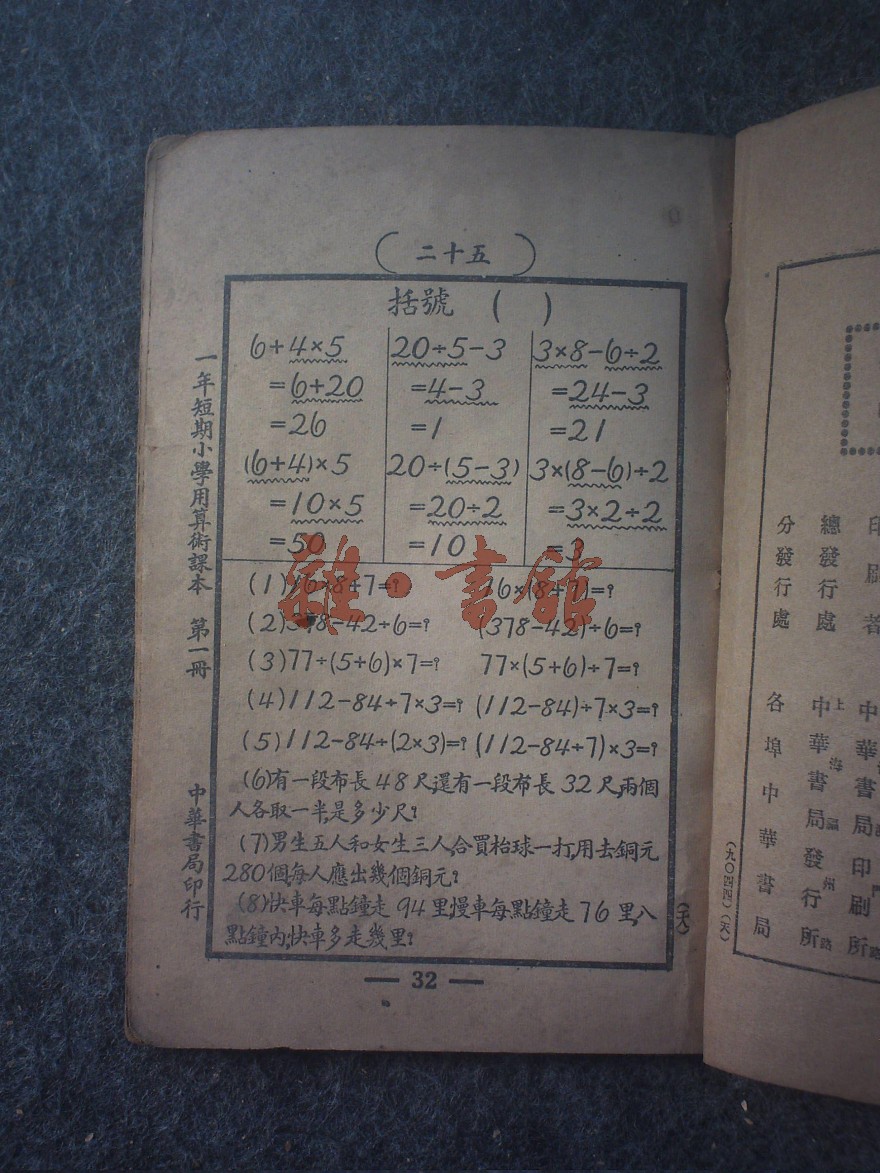 （二十五）
括號 （ ）
6+4×5
=6+20
=26
20÷5-3
=4-3
=1
3×8-6÷2
=24-3
=21
(6+4)×5
=10×5
=50
20÷(5-3)
=20÷2
=10
3×(8-6)÷2
=3×2÷2
=3
(1)16×8+7=? 16×(8+7)=?
(2)378-42÷6=? (378-42)÷6=?
(3)77÷(5+6)×7=? 77×(5+6)÷7=?
(4)112-84÷7×3=? (112-84)÷7×3=?
(5)112-84÷(2×3)=? (112-84÷7)×3=?
(6)有一段布長48尺,還有一段布長32尺,兩個
人各取一半,是多少尺?
(7)男生五人和女生三人,合買枱球一打,用去銅元
280個,每人應出幾個銅元?
(8)快車每點鐘走94里,慢車每點鐘走76里,八
點鐘內,快車多走幾里?
(天)
— 32 —
一年短期小學用算術課本 第一冊
中華書局印行
雜·書館
印刷者 中華書局印刷所
總發行處 上海 中華書局發行所
分發行處 各埠中華書局
(九〇四四)(天)